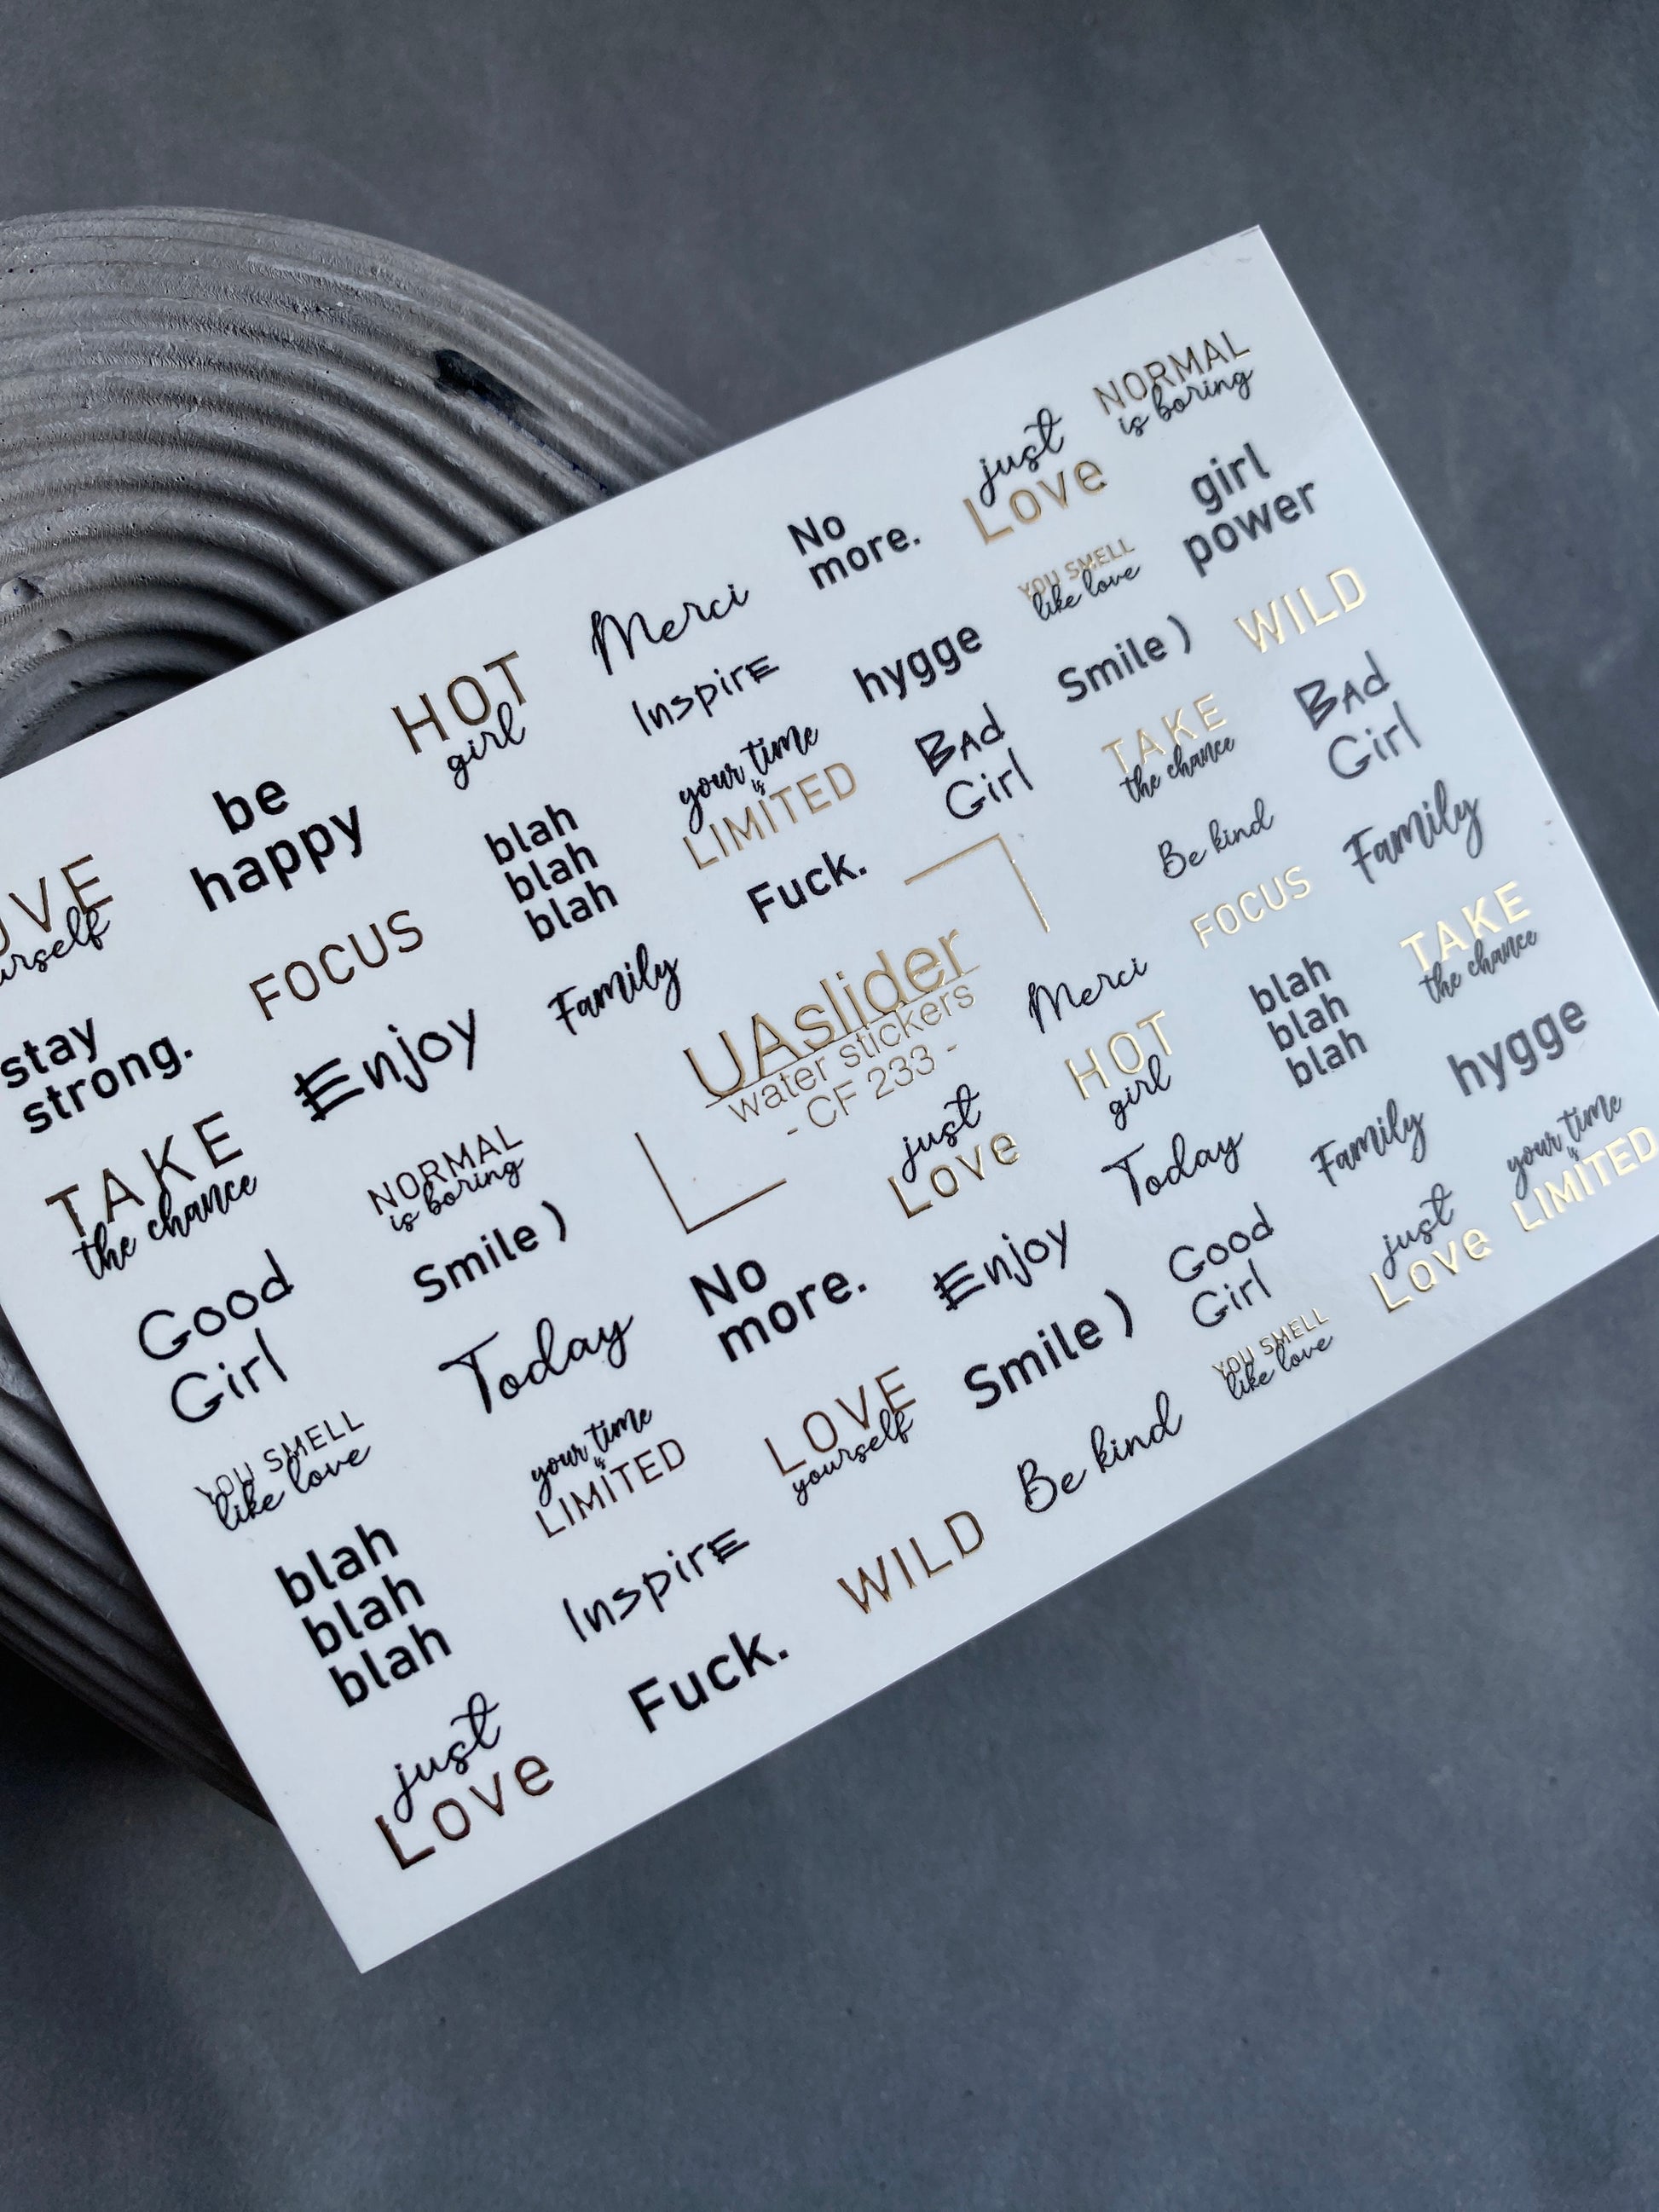 NORMAL
is boring
just
Love
girl
power
No
more.
YOU SMELL
like love
WILD
Merci
hygge
Smile )
BAd
Girl
HOT
girl
InspirE
your time
is
LIMITED
BAd
Girl
TAKE
the chance
Be kind
Family
be
happy
blah
blah
blah
Fuck.
FOCUS
TAKE
the chance
OVE
urself
FOCUS
Family
UAslider
water stickers
- CF 233 -
Merci
blah
blah
blah
hygge
stay
strong.
Enjoy
HOT
girl
just
Love
Family
your time
is
LIMITED
TAKE
the chance
NORMAL
is boring
Today
just
Love
Smile )
No
more.
Enjoy
Good
Girl
Good
Girl
Today
Smile )
YOU SMELL
like love
YOU SMELL
like love
your time
is
LIMITED
LOVE
yourself
Be kind
blah
blah
blah
InspirE
WILD
Fuck.
just
Love